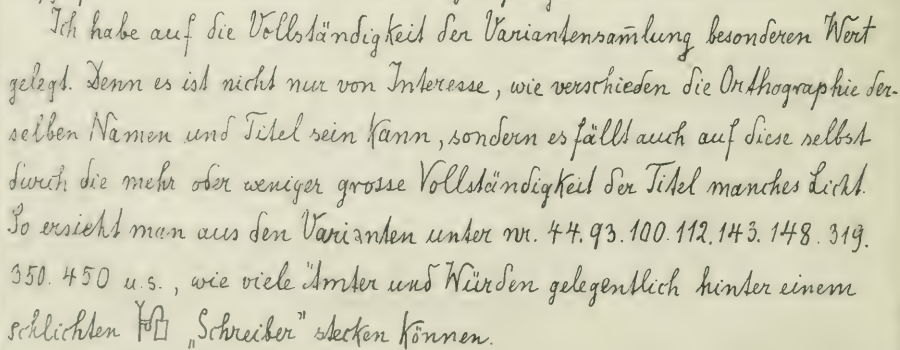 Ich habe auf die Vollständigkeit der Variantensam̅lung besonderen Wert
gelegt. Denn es ist nicht nur von Interesse, wie verschieden die Orthographie der-
selben Namen und Titel sein kann, sondern es fällt auch auf diese selbst
durch die mehr oder weniger grosse Vollständigkeit der Titel manches Licht.
So ersieht man aus den Varianten unter nr. 44. 93. 100. 112. 143. 148. 319.
350. 450 u.s., wie viele Ämter und Würden gelegentlich hinter einem
schlichten 𓏞 „Schreiber" stecken können.